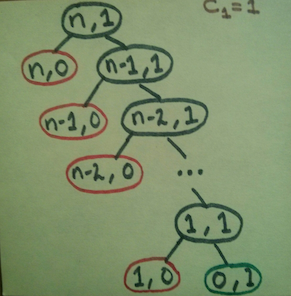 C₁=1
n,1
n,0 n-1,1
n-1,0 n-2,1
n-2,0 ...
1,1
1,0 0,1